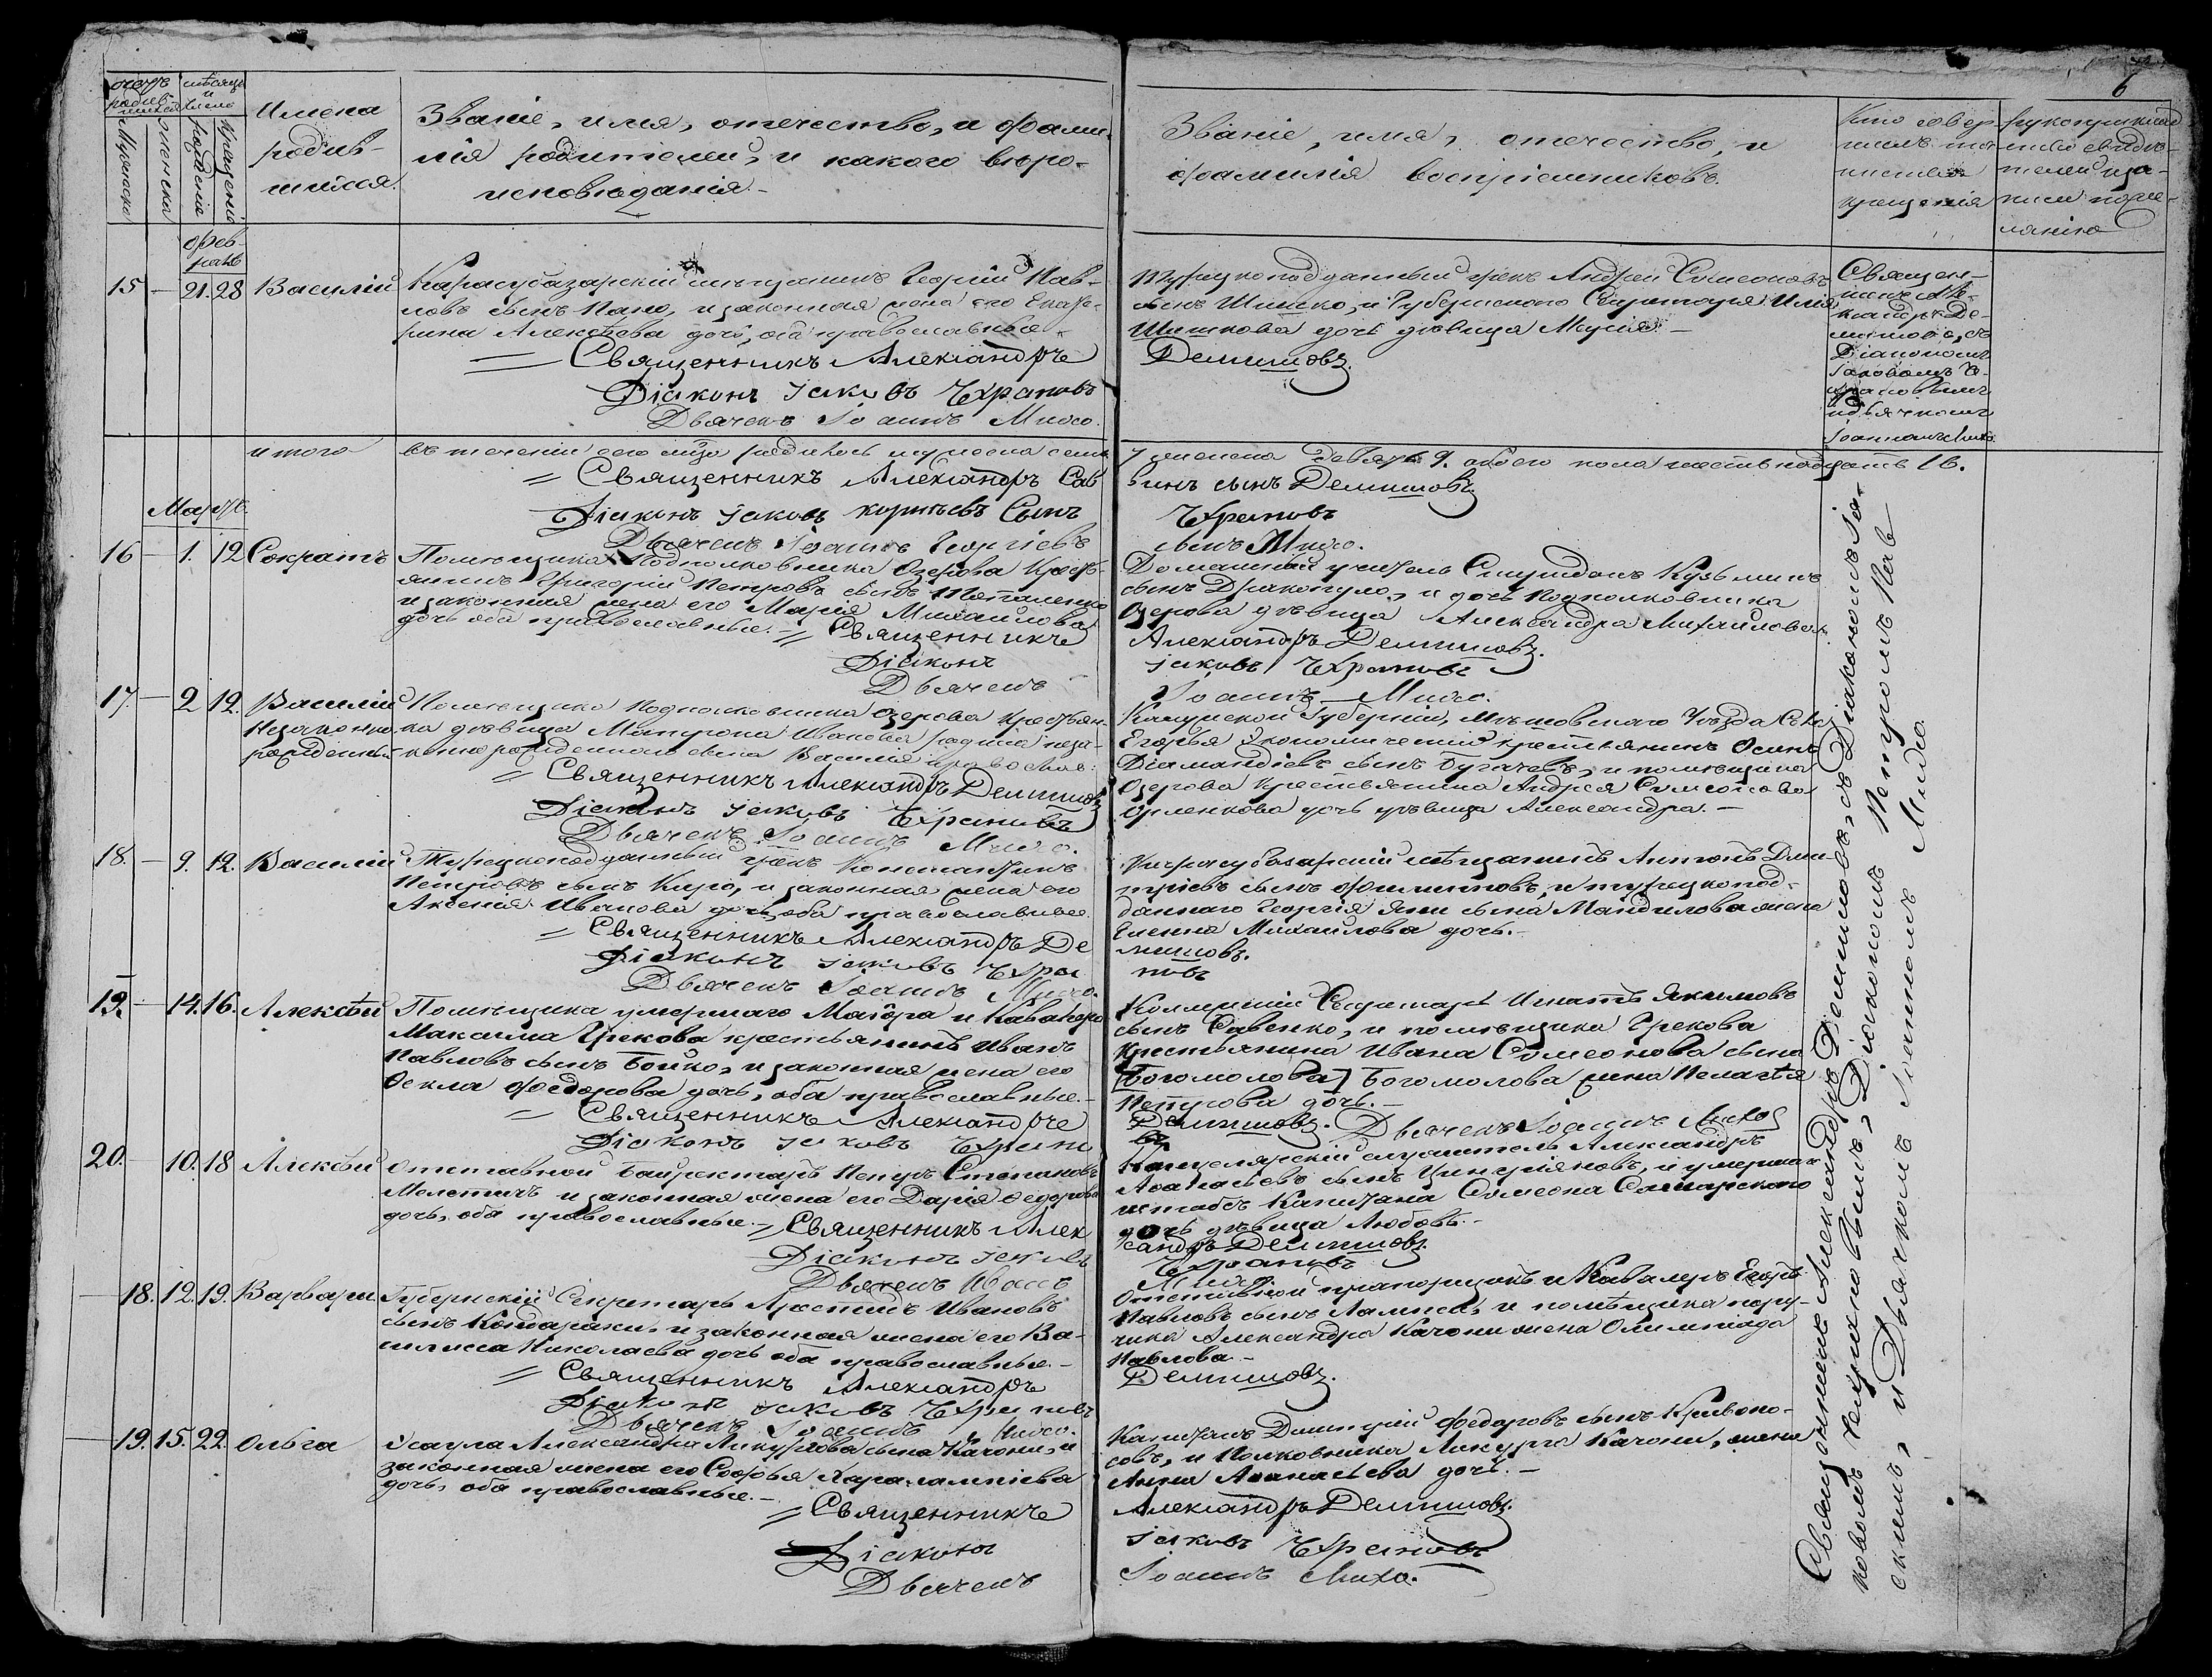 6
счетъ родив-
шихся
мѣсяцъ
и
число
Мужеска
женска
рожденія
Крещенія
Имена
родив-
шихся.
Званіе, имя, отечество, и фами-
лія родителей, и какого вѣро-
исповѣданія.-
Званіе, имя, отечество, и
фамилія воспріемниковъ.
Кто совер-
шалъ та-
инство
крещенія
рукоприклад
ство свидѣ-
телей иза-
писи поже-
ланію
фев-
раль
15 - 21. 28 Василій
Карасубазарскій мѣщанинъ Георгій Пав-
ловъ сынъ Пано, и законная жена его Екате-
рина Алексѣева дочь, оба православные.-
= Священникъ Александръ
Діаконъ Іаковъ Чехрановъ
Дьячекъ Іоаннъ Михо.
Турецкоподданный грекъ Андрей Симеоновъ
сынъ Шишко, и Губернскаго Секретаря Ильи
Шишкова дочь дѣвица Марія.-
Демишовъ.
Священ-
никъ Але-
ксандръ Де-
мишовъ, съ
Діакономъ
Іаковомъ Че-
храновымъ
и дьячкомъ
Іоанномъ Михо.
итого въ теченіи сего мѣсяца родилось мужеска семь
7 женска девять 9. обоего пола шестьнадцать 16.
= Священникъ Александръ Сав
винъ сынъ Демишовъ
Діаконъ Іаковъ корнѣевъ Сынъ
Чехрановъ
Дьячекъ Іоаннъ Георгіевъ
сынъ Михо.
Мартъ.
16 - 1. 12 Сократъ
Помѣщика Подполковника Озерова Кресть-
янинъ Григорій Петровъ сынъ Потапенко
и законная жена его Марія Михаилова
дочь оба православные.- = Священникъ
Діаконъ
Дьячекъ
Домашній учитель Спиридонъ Кузьминъ
сынъ Дракопуло, и дочь Подполковника
Озерова дѣвица Александра Михайлова.
Александръ Демишовъ.
Іаковъ Чехрановъ
Іоаннъ Михо.
17. - 2 12. Василій
Незаконно
рожденный
Помѣщика Подполковника Озерова крестьян-
ка дѣвица Матрона Иванова родила неза-
коннорожденнаго сына Василія православ:
= Священникъ Александръ Демишовъ
Діаконъ Іаковъ Чехрановъ
Дьячекъ Іоаннъ Михо.
Калужской Губерніи, Мѣщовскаго Уѣзда Села
Егорья Экономическій крестьянинъ Осипъ
Діамандіевъ сынъ Бугачевъ, и помѣщика
Озерова крестьянина Андрея Симеонова
Орленкова дочь дѣвица Александра.-
18. - 9. 12. Василій
Турецкоподданный грекъ Константинъ
Петровъ сынъ Киро, и законная жена его
Аксенія Иванова дочь, оба православные
= Священникъ Александръ Де
Діаконъ Іаковъ Чехра
Дьячекъ Іоаннъ Михо.
Карасубазарскій мѣщанинъ Антонъ Дми-
тріевъ сынъ Филиповъ, и турецкопод-
даннаго Георгія Яни сына Мандилова жена
Елена Михаилова дочь.-
мишовъ.
новъ
19. - 14. 16. Алексѣй
Помѣщика умершаго Маіора и Кавалера
Максима Грекова крестьянинъ Иванъ
Павловъ сынъ Бойко, и законная жена его
Өекла Федорова дочь, оба православные.-
= Священникъ Александръ
Діаконъ Іаковъ Чехрано
Коллежскій Секретарь Игнатъ Якимовъ
сынъ Савенко, и помѣщика Грекова
крестьянина Ивана Симеонова сына
[Богомолова] Богомолова жена Пелагѣя
Петрова дочь.-
Демишовъ. Дьячекъ Іоаннъ Михо
въ
20. - 10. 18 Алексѣй
Отставной Баиректаръ Петръ Степановъ
Мелетичъ и законная жена его Дарія Федорова
дочь, оба православные.- = Священникъ Алек
Діаконъ Іаковъ
Дьячекъ Иванъ
Канцелярскій служитель Александръ
Аѳанасьевъ сынъ Цингріяновъ, и умершаго
штабсъ Капитана Симеона Сомарскаго
дочь дѣвица Любовь.-
сандръ Демишовъ.
Чехрановъ
Михо
- 18. 12. 19. Варвара
Губернскій Секретарь Аристидъ Ивановъ
сынъ Кондараки, и законная жена его Ва-
силиса Николаева дочь оба православные.-
= Священникъ Александръ
Діаконъ Іаковъ Чехрановъ
Дьячекъ Іоаннъ Михо.
Отставной прапорщикъ и Кавалеръ Егоръ
Павловъ сынъ Лампси, и помѣщика пору-
чика Александра Качони жена Олимпіада
Павлова.-
Демишовъ.
- 19. 15. 22. Ольга
Эсаула Александра Ликургова сына Качони, и
законная жена его Софья Харалампіева
дочь, оба православные.-
= Священникъ
Діаконъ
Дьячекъ
Капитанъ Димитрій Федоровъ сынъ Кривоно-
совъ, и Полковника Ликурга Качони, жена
Анна Аѳанасьева дочь.-
Александръ Демишовъ.
Іаковъ Чехрановъ
Іоаннъ Михо.
Священникъ Александръ Демишовъ, съ Діакономъ Іа-
ковомъ Чехрановымъ, Діакономъ Петромъ Пав
скимъ, и Дьячкомъ Іоанномъ Михо.